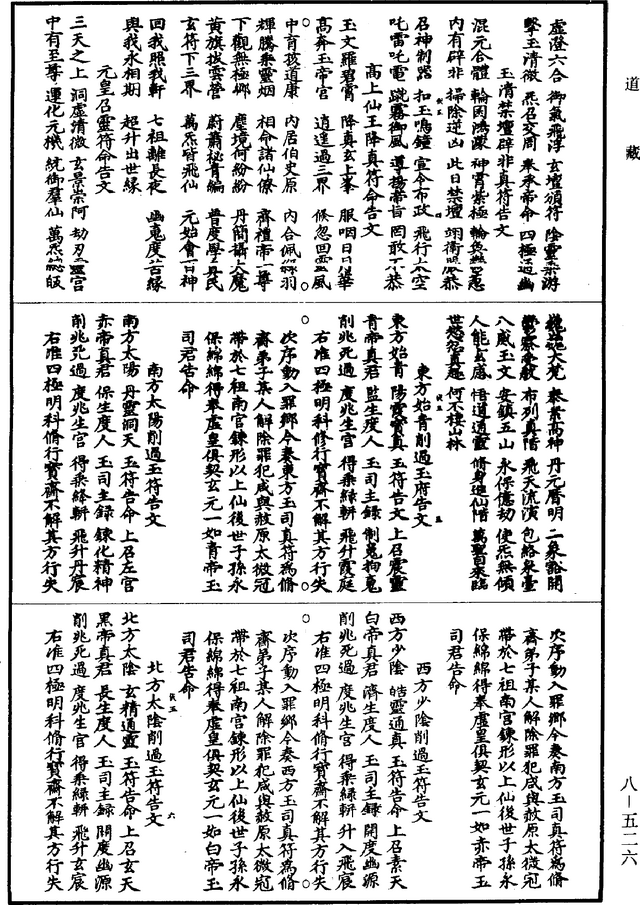 道藏
虛澄六合 御氣飛浮 玄壇頒符 陰靈柔游
擊玉清徵 炁召交周 奉承帝命 四極通幽
玉清禁壇辟非真符告文
混元合體 輪困鴻濛 神霄紫極 輪奐
內有辟非 掃除逆凶 此日禁壇 翊衛
召神制器 扣玉鳴鐘 宣令布政 飛行太空
叱雷吒電 蹴霧御風 導揚帝旨 罔敢不恭
高上仙王降真符命告文
玉文羅碧霄 降真玄上峯 服咽日月華
高奔玉帝宮 逍遙過三界 倏忽回靈風
中育孩道康 內居伯史原 內合佩
輝騰乘靈烟 相命諸仙僚 齊禮帝一尊
下觀無極鄉 塵境何紛紛 丹簡攝大魔
黃旗拔雲營 蔚蕭祕青編 普度學
玄符下三界 萬炁皆飛仙 元始會百神
回我照我軒 七祖離長夜 幽
與我永相期 超升出世緣
元皇召靈符命告文
三天之上 洞虛清微 玄景崇阿 劫刃靈宮
中有至尊 運化元機 統御羣仙 萬炁總
大梵 奉素高神 丹元曆明 二炁豁開
布列真階 飛天流演 包絡泉臺
八威玉文 安鎮五山 永保億劫 使炁無傾
人能玄感 悟道通靈 脩身進仙階 萬聖自來臨
世 何不棲山林
東方始青削過玉府告文
東方始青 陽霞寶真 玉符告文 上召震靈
青帝真君 監生度人 玉司主錄 制魔拘
削兆死過 度兆生官 得乘綠軿 飛升霞庭
右准四極明科修行寶齋不解其方行失
次序動入罪鄉今奏東方玉司真符為脩
齋弟子某人解除罪犯咸與赦原太微冠
帶於七祖南宮鍊形以上仙後世子孫永
保綿綿得奉虛皇俱契玄元一如青帝玉
司君告命
南方太陽削過玉符告文
南方太陽 丹靈洞天 玉符告命 上召左官
赤帝真君 保生度人 玉司主錄 鍊化精神
削兆死過 度兆生官 得乘絳軿 飛升丹宸
右准四極明科脩行寶齋不解其方行失
次序動入罪鄉今奏南方玉司真符為脩
齋弟子某人解除罪犯咸與赦原太微冠
帶於七祖南宮鍊形以上仙後世子孫永
保綿綿得奉虛皇俱契玄元一如赤帝玉
司君告命
西方少陰削過玉符告文
西方少陰 皓靈通真 玉符告命 上召素天
白帝真君 濟生度人 玉司主錄 開度幽源
削兆死過 度兆生官 得乘綠軿 升入飛宸
右准四極明科脩行寶齋不解其方行失
次序動入罪鄉今奏西方玉司真符為脩
齋弟子某人解除罪犯咸與赦原太微冠
帶於七祖南宮鍊形以上仙後世子孫永
保綿綿得奉虛皇俱契玄元一如白帝玉
司君告命
北方太陰削過玉符告文
北方太陰 玄精通靈 玉符告命 上召玄天
黑帝真君 長生度人 玉司主錄 開度幽源
削兆死過 度兆生官 得乘綠軿 飛升玄宸
右准四極明科脩行寶齋不解其方行失
八—五二六